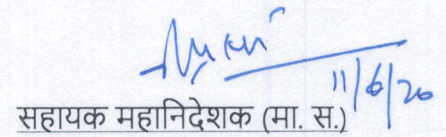 11/6/20
सहायक महानिदेशक (मा. स.)